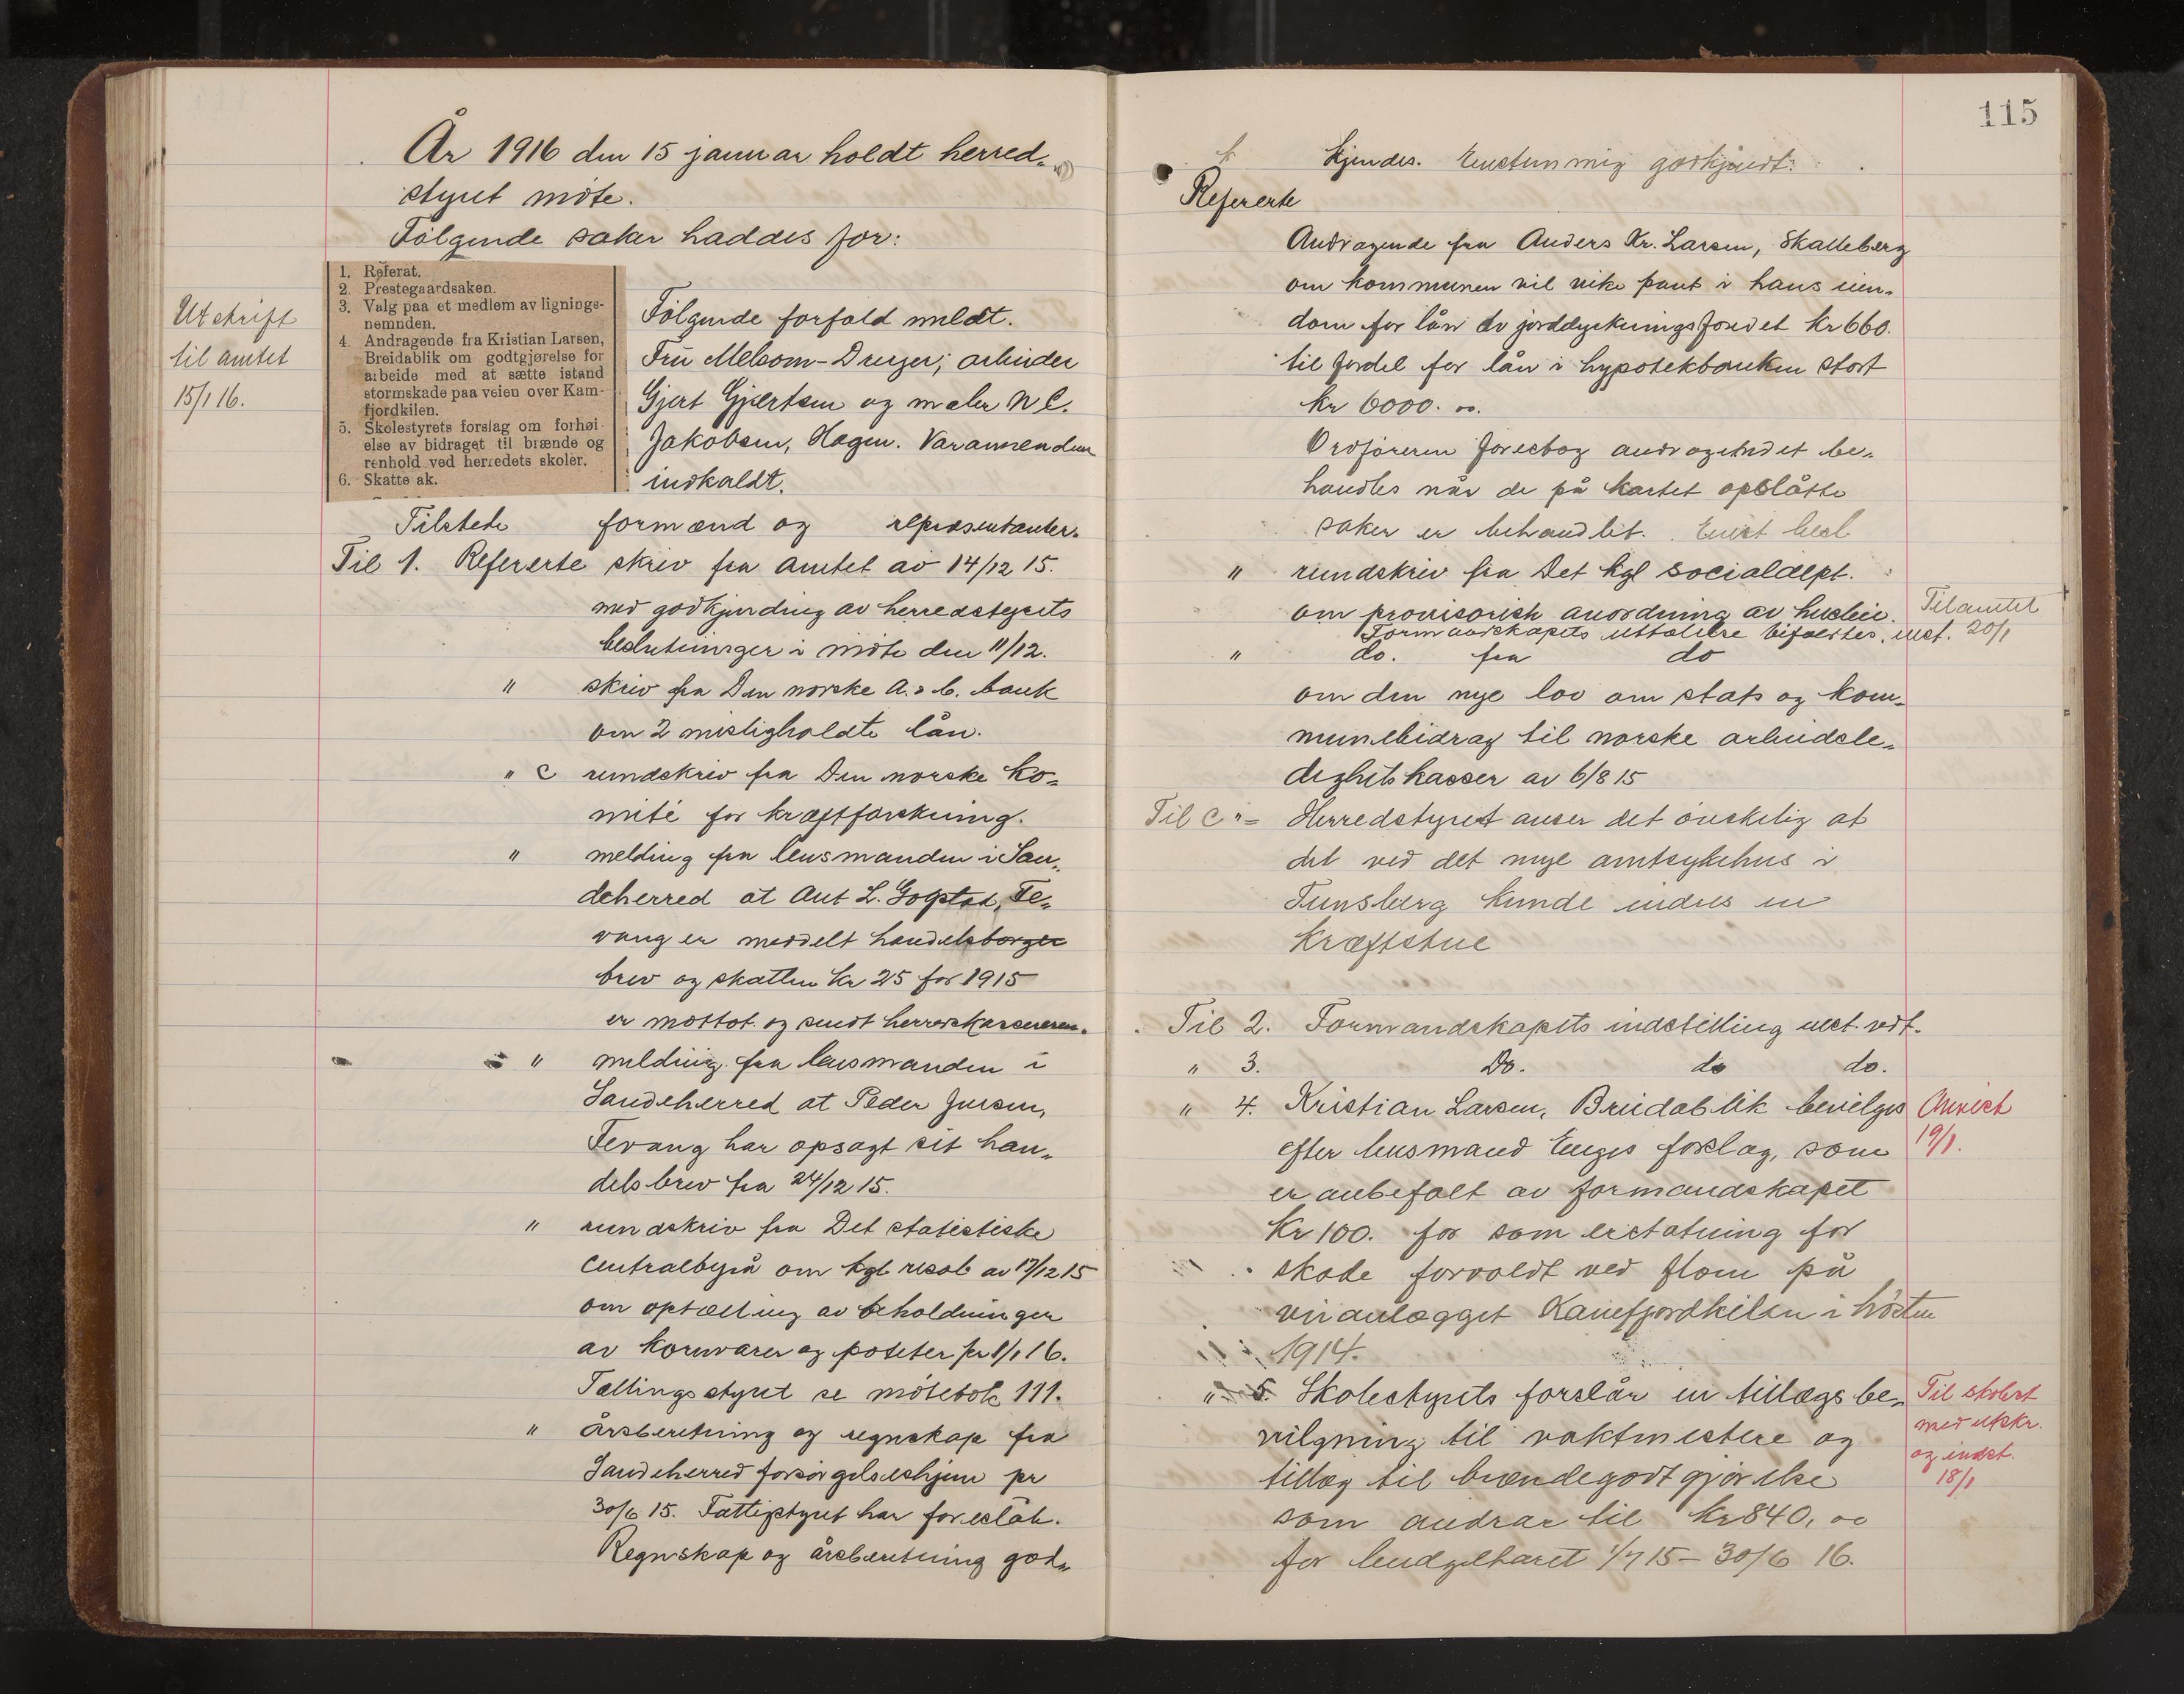 År 1916 den 15 januar holdt herred-
styret møte.
Følgende saker haddes for:
Utskrift
til amtet
15/1 16.
1. Referat.
2. Prestegaardsaken.
3. Valg paa et medlem av lignings-
nemnden.
4. Andragende fra Kristian Larsen,
Breidablik om godtgjørelse for
arbeide med at sætte istand
stormskade paa veien over Kam-
fjordkilen.
5. Skolestyrets forslag om forhøi-
else av bidraget til brænde og
renhold ved herredets skoler.
6. Skatte ak.
Følgende forfald meldt.
Fru Melsom-Dreyer; arbeider
Gjert Gjertsen og maler N C.
Jakobsen, Hagen. Varamenden
indkaldt.
Tilstede formænd og repræsentanter.
Til 1. Refererte skriv fra amtet av 14/12 15.
med godkjending av herredstyrets
beslutninger i møte den 11/12.
" skriv fra Den norske A. & b. bank
om 2 misligholdte lån.
" C rundskriv fra Den norske ko-
mité for kræftforskning.
" melding fra lensmanden i San-
deherred at Ant L. Fe-
vang er meddelt handelsborger
brev og skatten kr 25 for 1915
er mottot. og sendt herredskassereren.
" melding fra lensmanden i
Sandeherred at Peder Jensen,
Fevang har opsagt sit han-
delsbrev fra 24/12 15.
" rundskriv fra Det statistiske
centralbyrå om kgl resol av 17/12 15
om optælling av beholdninger
av kornvarer og poteter pr 1/1 16.
Tællingsstyret se møtebok 111.
" årsberetning og regnskap fra
Sandeherred forsørgelseshjem pr
30/6 15. Fattigstyret har foreslåt.
Regnskap og årsberetning god-
115
kjendes. Enstemmig godkjendt.
Refererte
Andragende fra Anders Kr. Larsen, Skalleberg
om kommunen vil vike pant i hans eien-
dom for lån av jorddyrkningsfondet kr 660.
til fordel for lån i hypotekbanken stort
kr 6000. oo.
Ordføreren foreslog andragendet be-
handles når de på kartet opslåtte
saker er behandlet. Enst besl
" rundskriv fra Det kgl socialdept.
om provisorisk anordning av husleie.
Formandskapets uttalelse bifaldtes, enst.
Til amtet
20/1
" do. fra do
om den nye lov om stats og kom-
munebidrag til norske arbeidsle-
dighetskasser av 6/8 15
Til C "= Herredstyret anser det ønskelig at
det ved det nye amtsykehus i
Tunsberg kunde indres en
kræftstue
Til 2. Formandskapets indstilling enst. vedt.
" 3. Do. do do.
" 4. Kristian Larsen, Breidablik bevilges
efter lensmand Enges forslag, som
er anbefalt av formandskapet
Kr 100. for som erstatning for
skade forvoldt ved flom på
veianlægget Kamfjordkilen i høsten
1914.
Anvist
19/1.
" 5. Skolestyrets forslår en tillægsbe-
vilgning til vaktmestere og
tillæg til brændegodtgjørelse
som andrar til kr 840, oo
for budgetåret 1/7 15 - 30/6 16.
Til skolest
med utskr.
og indst.
18/1